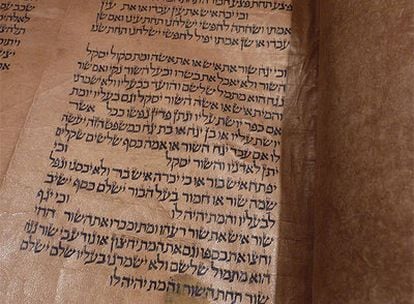 וכי יכה איש את עין עבדו או את עין
אמתו ושחתה לחפשי ישלחנו תחת עינו ואם שן
עבדו או שן אמתו יפיל לחפשי ישלחנו תחת שנו
וכי יגח שור את איש או את אשה ומת סקול יסקל
השור ולא יאכל את בשרו ובעל השור נקי ואם שור
נגח הוא מתמל שלשם והועד בבעליו ולא ישמרנו
והמית איש או אשה השור יסקל וגם בעליו יומת
אם כפר יושת עליו ונתן פדין נפשו ככל אשר
יושת עליו או בן יגח או בת יגח כמשפט הזה יעשה
לו אם עבד יגח השור או אמה כסף שלשים שקלים
יתן לאדניו והשור יסקל וכי
יפתח איש בור או כי יכרה איש בר ולא יכסנו ונפל
שמה שור או חמור בעל הבור ישלם כסף ישיב
לבעליו והמת יהיה לו וכי יגף
שור איש את שור רעהו ומת ומכרו את השור החי
וחצו את כספו וגם את המת יחצון או נודע כי שור נגח
הוא מתמול שלשם ולא ישמרנו בעליו שלם ישלם
שור תחת השור והמת יהיה לו